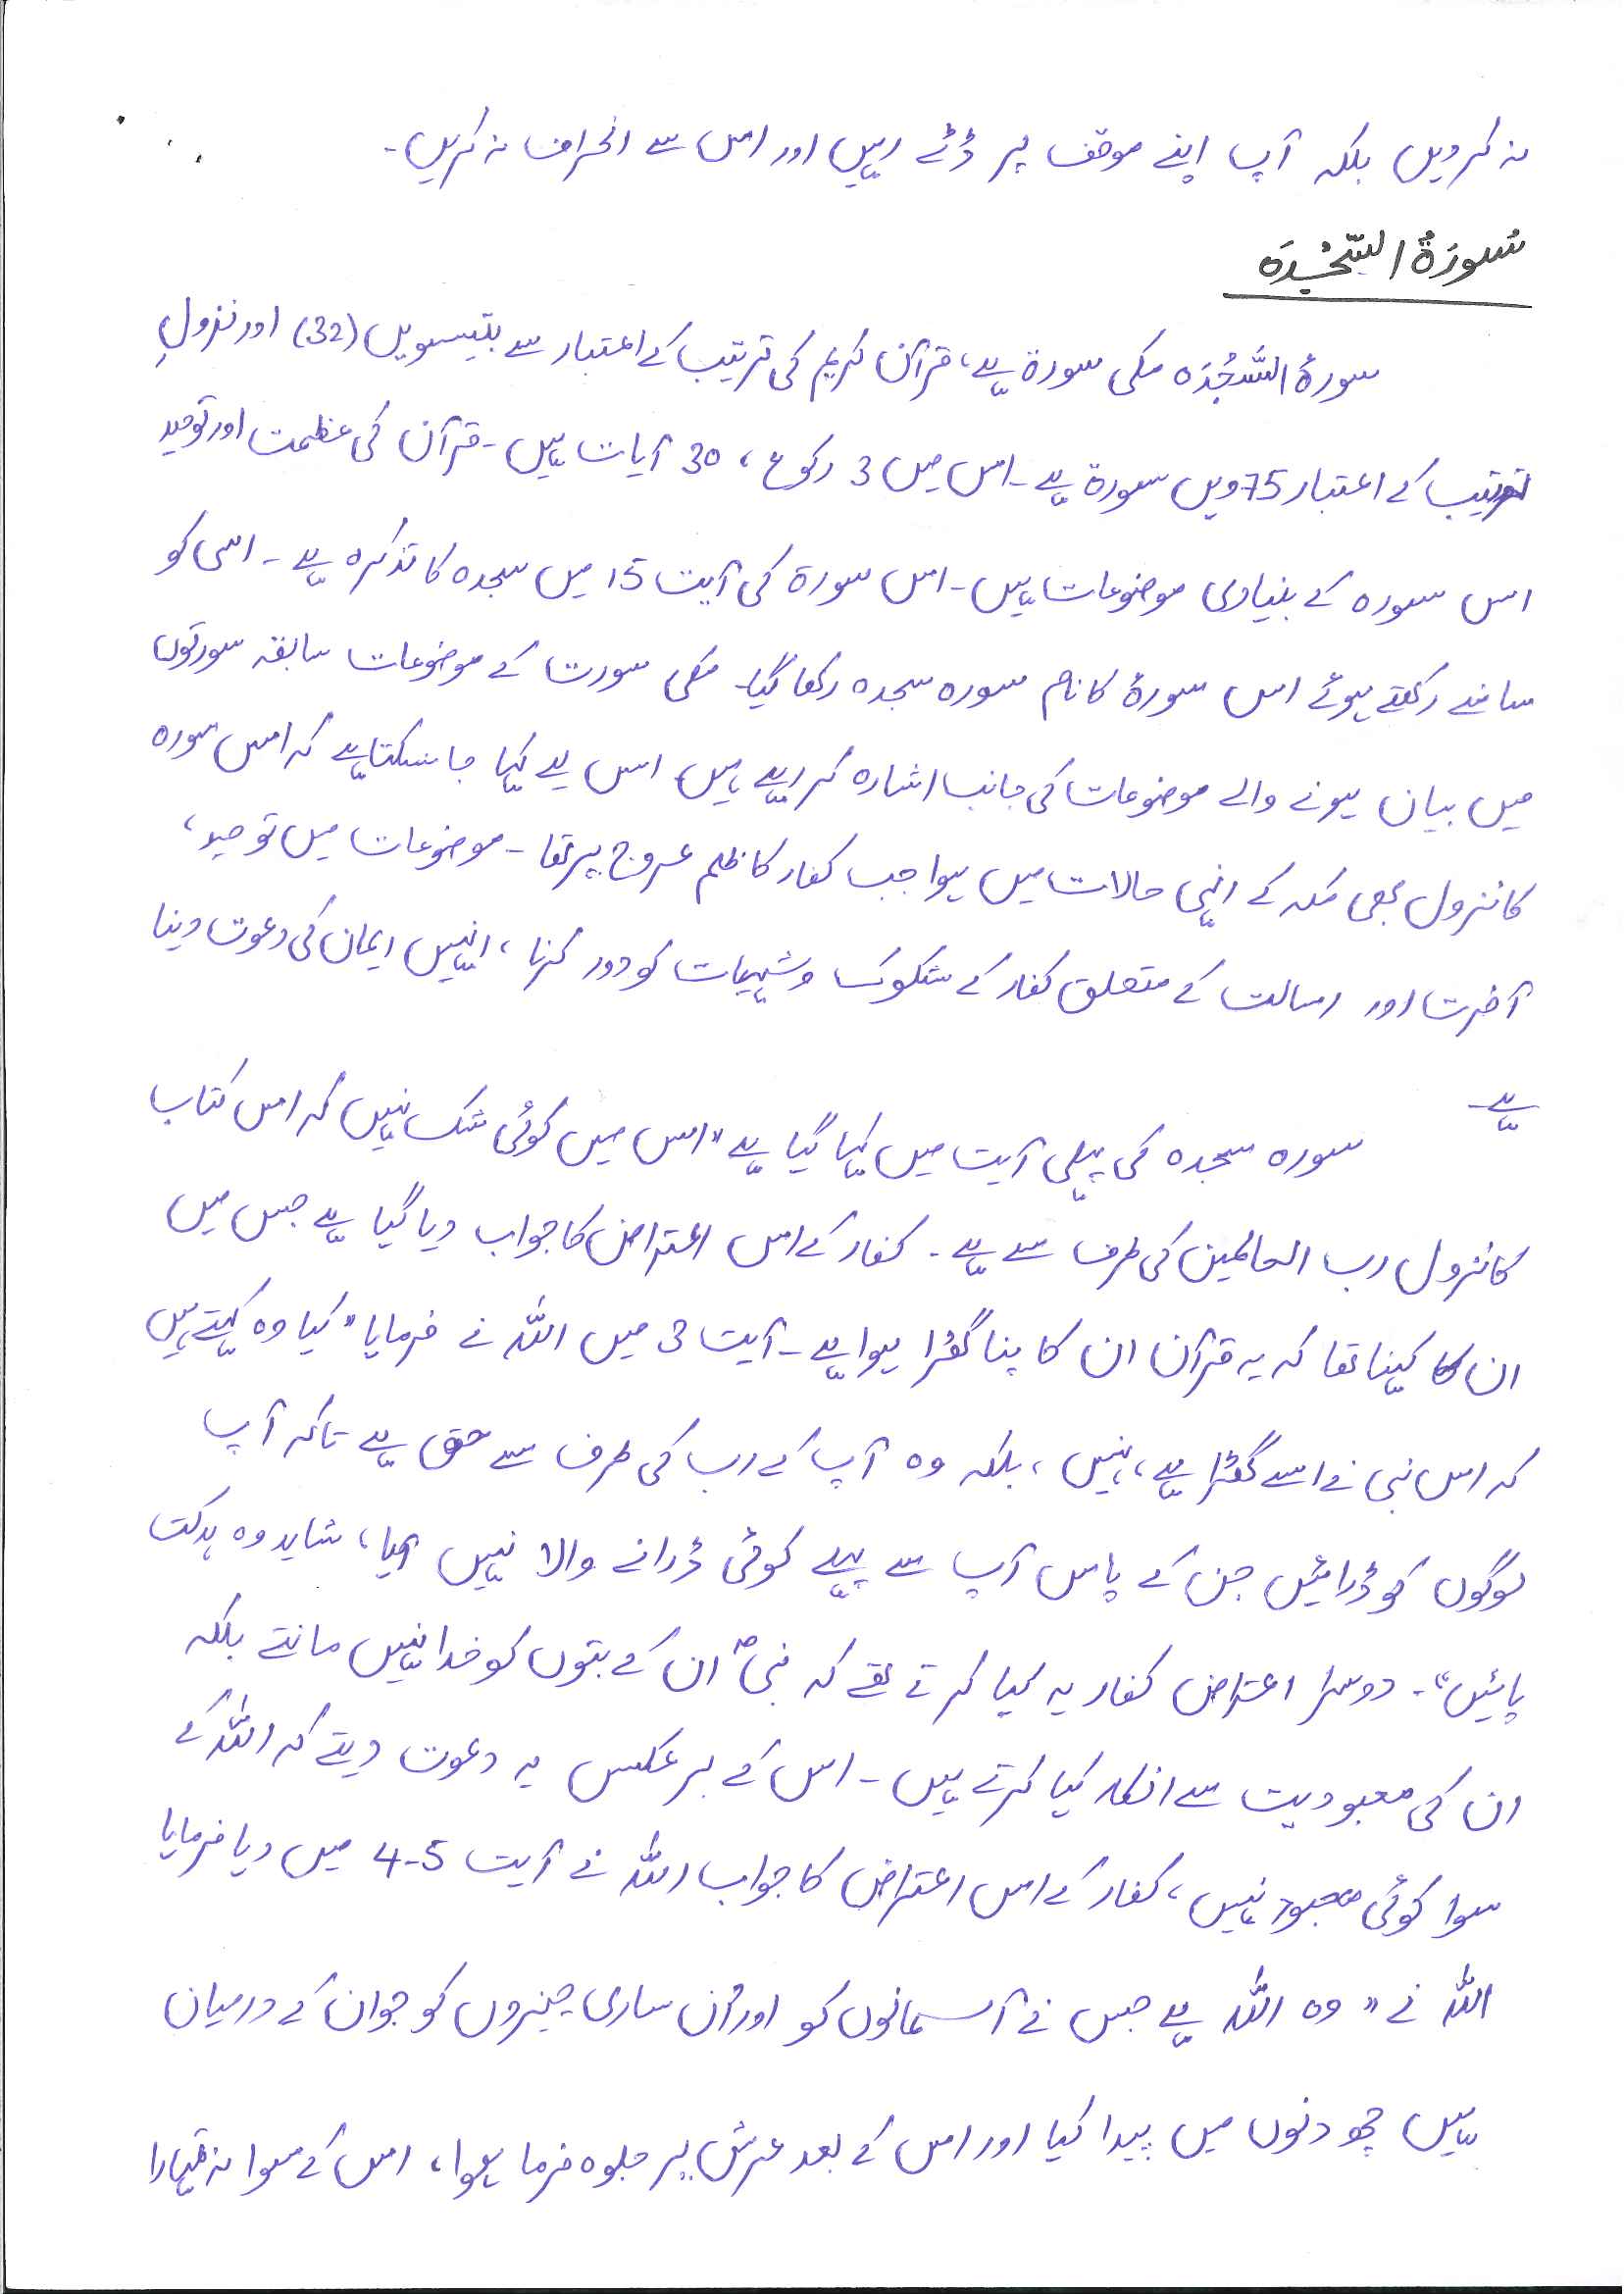 نہ کر دیں بلکہ آپ اپنے موقف پر ڈٹے رہیں اور اس سے انحراف نہ کریں۔
سُورَۃُ السَّجْدَہ
سورۂ السَّجْدَہ مکی سورۃ ہے، قرآن کریم کی ترتیب کے اعتبار سے بتیسویں (32) اور نزولِ
ترتیب کے اعتبار 75ویں سورۃ ہے۔ اس میں 3 رکوع، 30 آیات ہیں۔ قرآن کی عظمت اور توحید
اس سورہ کے بنیادی موضوعات ہیں۔ اس سورۃ کی آیت 15 میں سجدہ کا تذکرہ ہے۔ اسی کو
سامنے رکھتے ہوئے اس سورۂ کا نام سورہ سجدہ رکھا گیا۔ مکی سورت کے موضوعات سابقہ سورتوں
میں بیان ہونے والے موضوعات کی جانب اشارہ کر رہے ہیں اس لیے کہا جا سکتا ہے کہ اس سورہ
کا نزول بھی مکہ کے انہی حالات میں ہوا جب کفار کا ظلم عروج پر تھا۔ موضوعات میں توحید،
آخرت اور رسالت کے متعلق کفار کے شکوک و شبہات کو دور کرنا، انہیں ایمان کی دعوت دینا
ہے۔
سورہ سجدہ کی پہلی آیت میں کہا گیا ہے "اس میں کوئی شک نہیں کہ اس کتاب
کا نزول رب العالمین کی طرف سے ہے۔ کفار کے اس اعتراض کا جواب دیا گیا ہے جس میں
ان کا کہنا تھا کہ یہ قرآن ان کا بنا گھڑا ہوا ہے۔ آیت 3 میں اللہ نے فرمایا "کیا وہ کہتے ہیں
کہ اس نبی نے اسے گھڑا ہے، نہیں، بلکہ وہ آپ کے رب کی طرف سے حق ہے تاکہ آپ
لوگوں کو ڈرائیں جن کے پاس آپ سے پہلے کوئی ڈرانے والا نہیں آیا، شاید وہ ہدایت
پائیں"۔ دوسرا اعتراض کفار یہ کیا کرتے تھے کہ نبیؐ ان کے بتوں کو خدا نہیں مانتے بلکہ
ان کی معبودیت سے انکار کیا کرتے ہیں۔ اس کے برعکس یہ دعوت دیتے کہ اللہ کے
سوا کوئی معبود نہیں، کفار کے اس اعتراض کا جواب اللہ نے آیت 4-5 میں دیا فرمایا
اللہ نے "وہ اللہ ہے جس نے آسمانوں کو اور اُن ساری چیزوں کو جو ان کے درمیان
ہیں چھ دنوں میں پیدا کیا اور اس کے بعد عرش پر جلوہ فرما ہوا، اس کے سوا نہ تمہارا